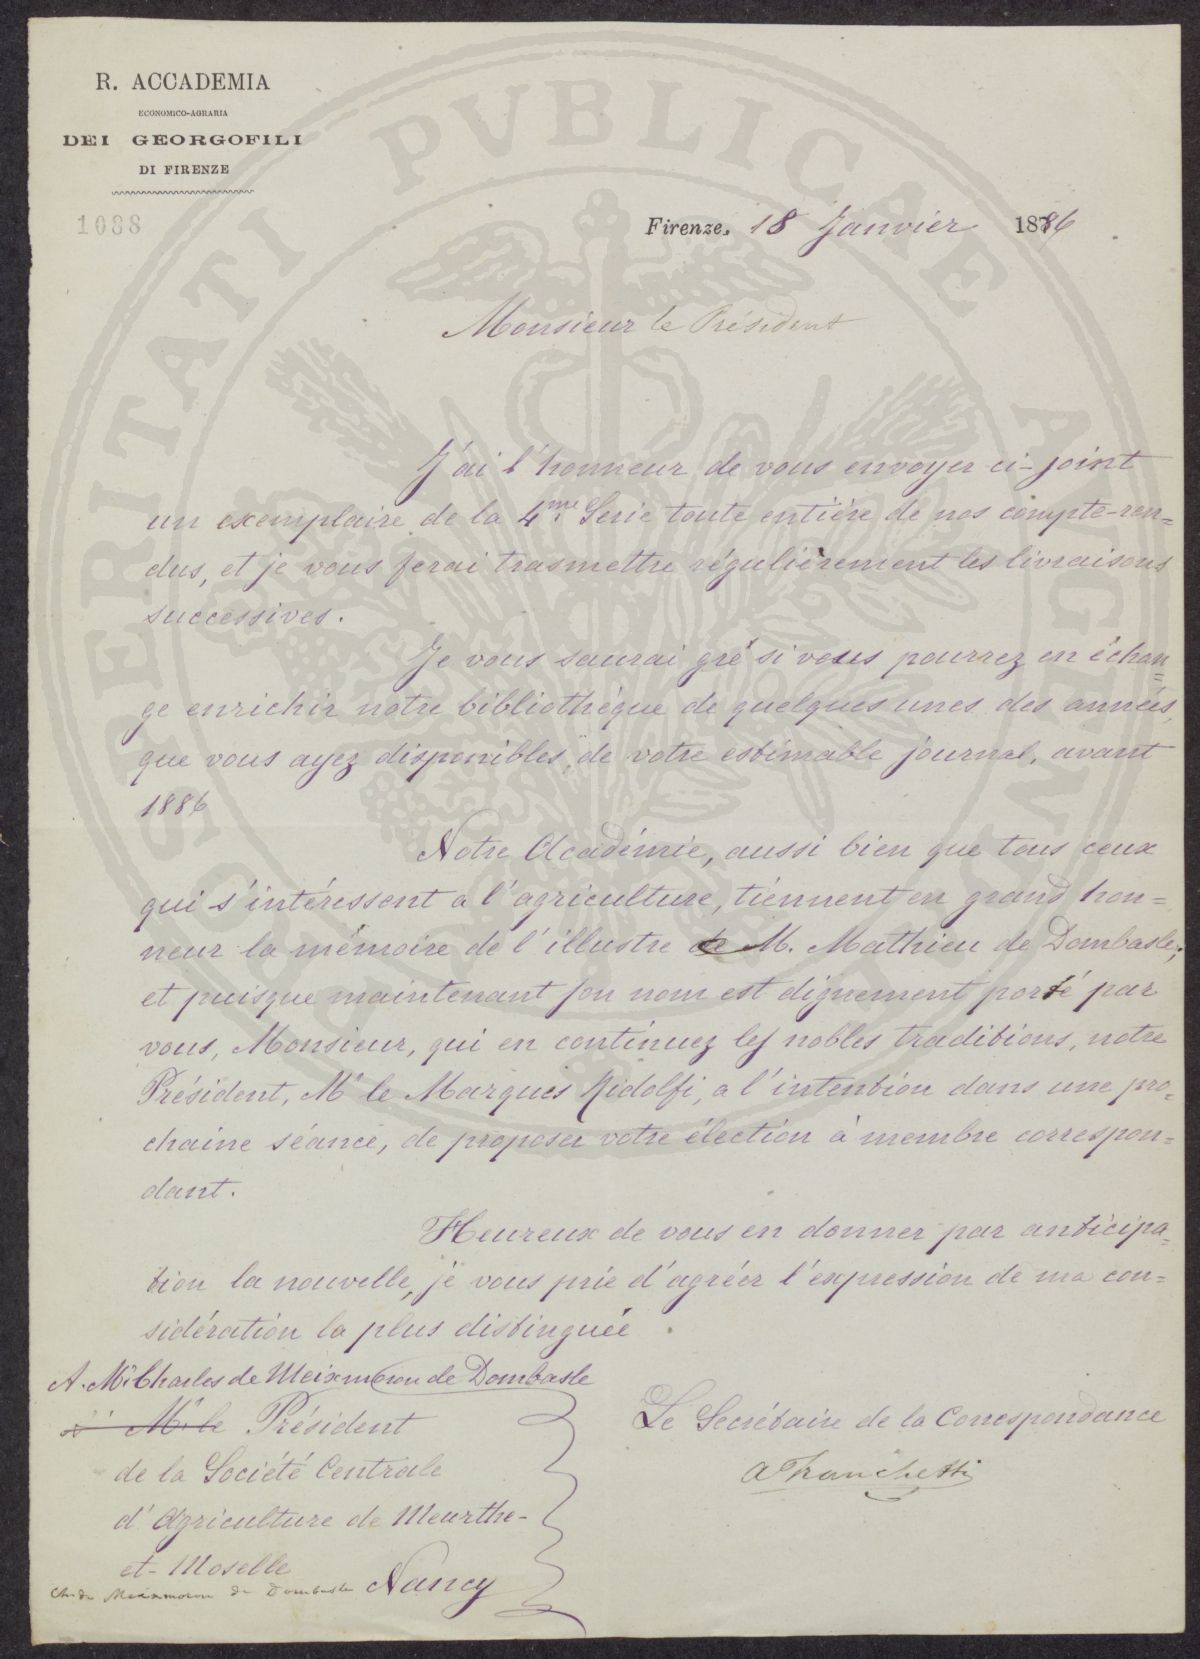 R. ACCADEMIA
ECONOMICO-AGRARIA
DEI GEORGOFILI
DI FIRENZE
1088
PROSPERITATI PVBLICAE AVGENDAE
Firenze, 18 Janvièr 1886
Monsieur le Président
J'ai l'honneur de vous envoyer ci-joint
un exemplaire de la 4.me Serie toute entière de nos compte-ren=
dus, et je vous ferai trasmettre régulièrement les livraisons
successives.
Je vous saurai gré si vous pourrez en échan=
ge enrichir notre bibliothéque de quelques unes des années,
que vous ayez disponibles, de votre estimable journal, avant
1886
Notre Académie, aussi bien que tous ceux
qui s'intéressent a l'agriculture, tiennent en grand hon=
neur la mémoire de l'illustre de M. Mathieu de Dombasle;
et puisque maintenant son nom est dignement porté par
vous, Monsieur, qui en continuez les nobles traditions, notre
Président, Mr le Marquis Ridolfi, a l'intention dans une pro=
chaine séance, de proposer votre élection à membre correspon=
dant.
Heureux de vous en donner par anticipa=
tion la nouvelle, je vous prie d'agréer l'expression de ma con=
sidération la plus distinguée.
A. Mr Charles de Meixmoron de Dombasle
Mr le Président
de la Société Centrale
d'Agriculture de Meurthe-
et-Moselle
Nancy
Ch. de Meixmoron de Dombasle
Le Secrétaire de la Correspondance
A Franchetti